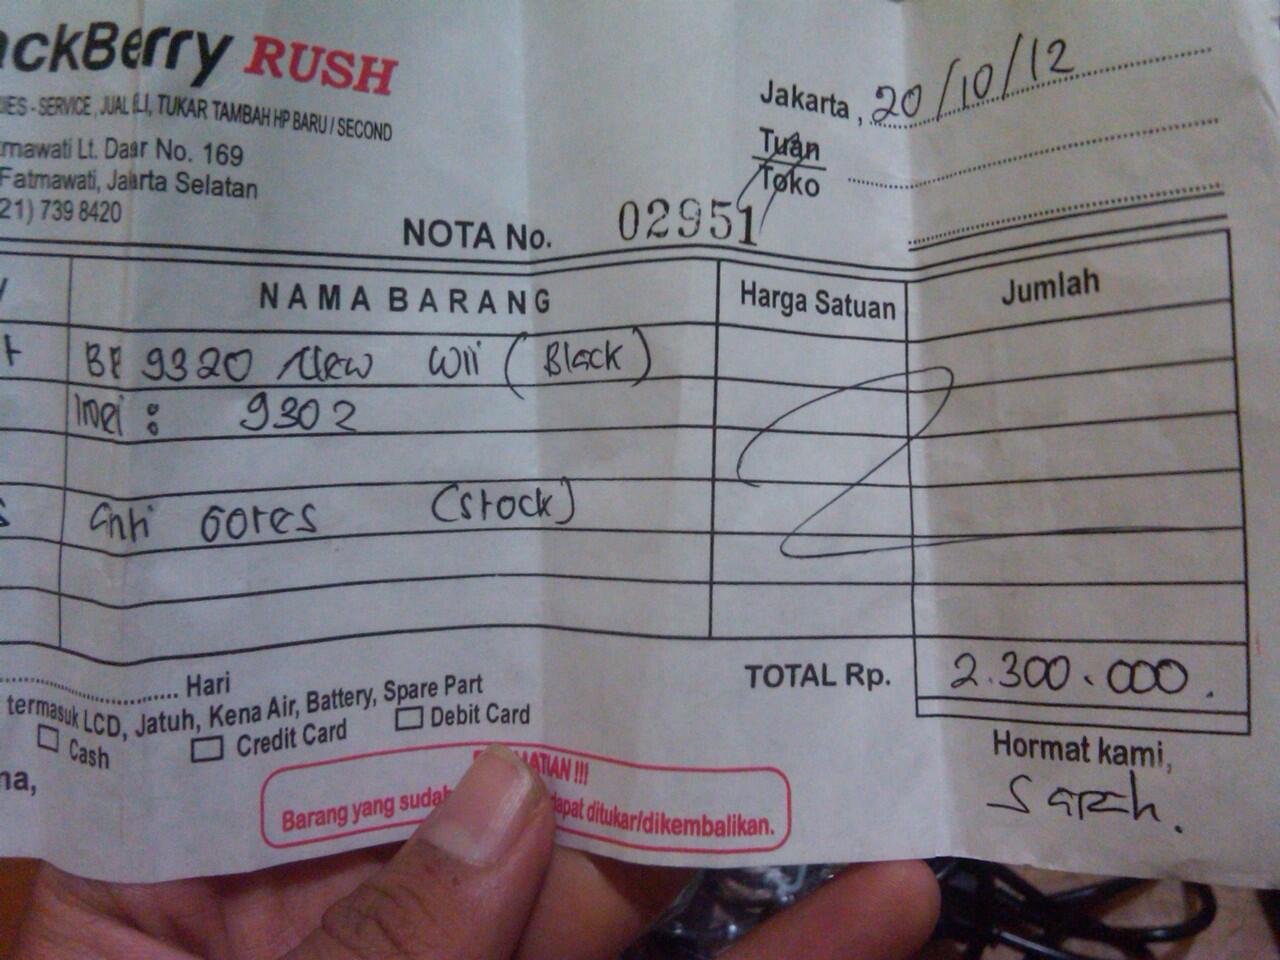 ackBerry RUSH
IES - SERVICE, JUAL BELI, TUKAR TAMBAH HP BARU / SECOND
mawati Lt. Dasar No. 169
Fatmawati, Jakarta Selatan
21) 739 8420
Jakarta, 20/10/12
Tuan
Toko
NOTA No. 02951
NAMA BARANG Harga Satuan Jumlah
BB 9320 New Wii (Black)
Imei : 9302
Anti Gores (Stock)
Hari
TOTAL Rp. 2.300.000.
termasuk LCD, Jatuh, Kena Air, Battery, Spare Part
Cash Credit Card Debit Card
Hormat kami,
ma,
ATIAN !!!
Barang yang sudah dapat ditukar/dikembalikan.
Sarah.